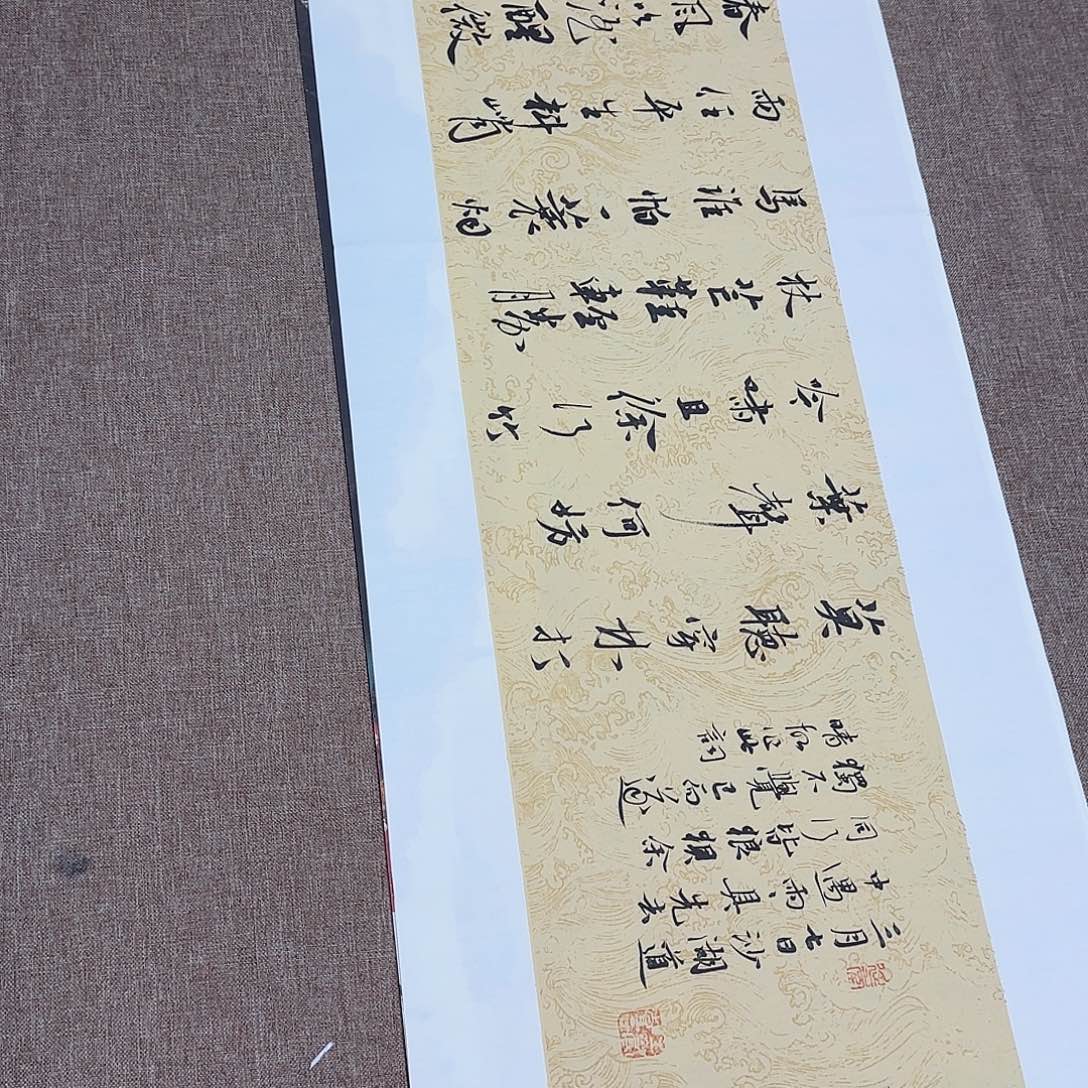 三月七日沙湖道
中遇雨々具先去
同行皆狼狽余
獨不覺已而遂
晴故作此詞
莫聽穿林打
葉聲何妨
吟嘯且徐行竹
杖芒鞋輕勝
馬誰怕一蓑烟
雨任平生料峭
春風吹酒醒微